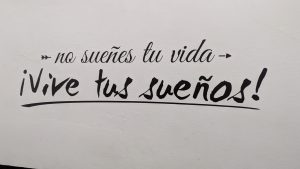 no sueñes tu vida
¡Vive tus sueños!